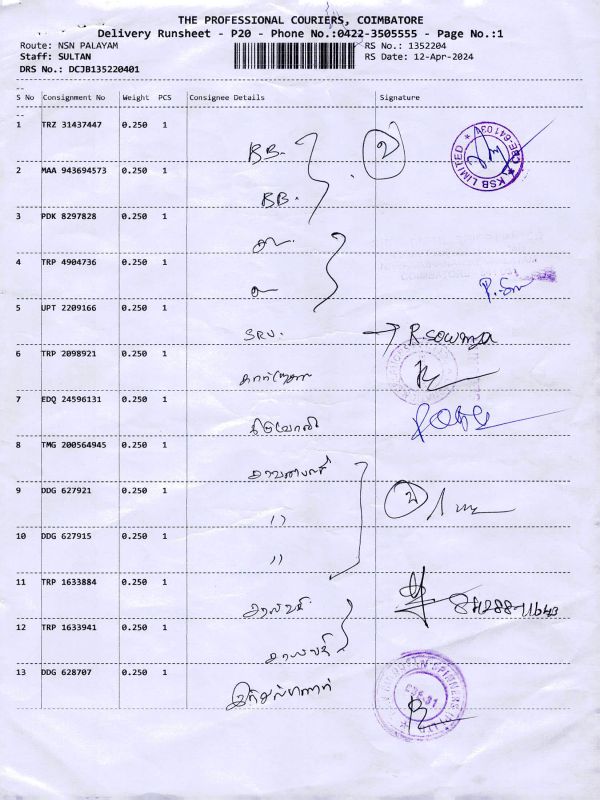 THE PROFESSIONAL COURIERS, COIMBATORE
Delivery Runsheet - P20 - Phone No.:0422-3505555 - Page No.:1
Route: NSN PALAYAM RS No.: 1352204
Staff: SULTAN RS Date: 12-Apr-2024
DRS No.: DCJB135220401
S No Consignment No Weight PCS Consignee Details Signature
1 TRZ 31437447 0.250 1 BB. 2
KSB LIMITED
2 MAA 943694573 0.250 1 BB.
3 PDK 8297828 0.250 1
4 TRP 4904736 0.250 1
5 UPT 2209166 0.250 1 SRU. R.Sowmya
6 TRP 2098921 0.250 1
7 EDQ 24596131 0.250 1
8 TMG 200564945 0.250 1
9 DDG 627921 0.250 1 ,,
10 DDG 627915 0.250 1 ,,
11 TRP 1633884 0.250 1
12 TRP 1633941 0.250 1
13 DDG 628707 0.250 1